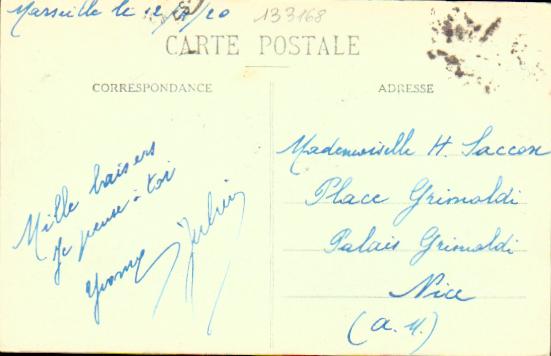 Marseille le 12 20
133168
CARTE POSTALE
CORRESPONDANCE
ADRESSE
Mille baisers
Je pense à toi
Yvonne
Mademoiselle H. Saccone
Place Grimaldi
Palais Grimaldi
Nice
(A. M.)